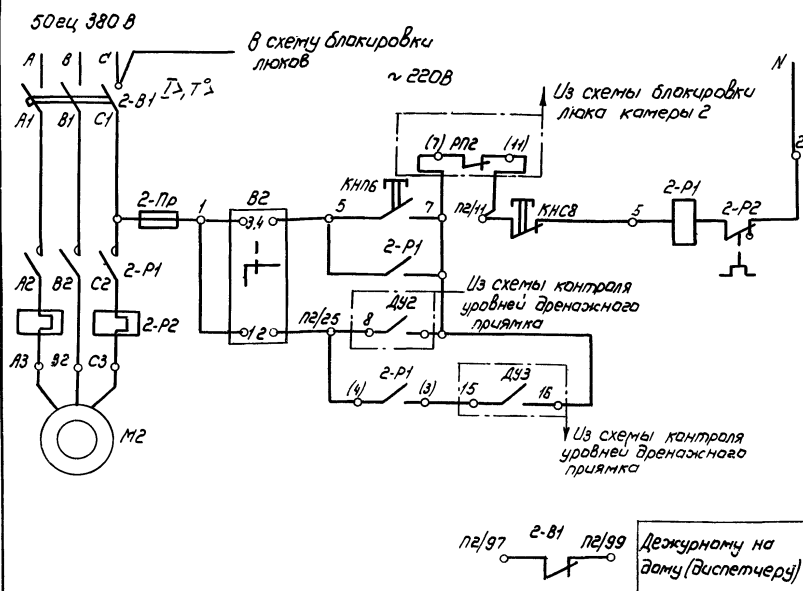 50гц 380 В
А В С
В схему блокировки
люков
~ 220В
N
2-В1 I>, T°>
А1 В1 С1
Из схемы блокировки
люка камеры 2
(7) РП2 (11)
2
2-Пр 1 В2 3,4 5 КНП6 7 П2/11 КНС8 5 2-Р1 2-Р2
2-Р1
А2 В2 С2 2-Р1
Из схемы контроля
уровней дренажного
приямка
1 2 П2/25 8 ДУ2
2-Р2
А3 В2 С3
(4) 2-Р1 (3) 15 ДУ3 16
М2
Из схемы контроля
уровней дренажного
приямка
П2/97 2-В1 П2/99
Дежурному на
дому (диспетчеру)